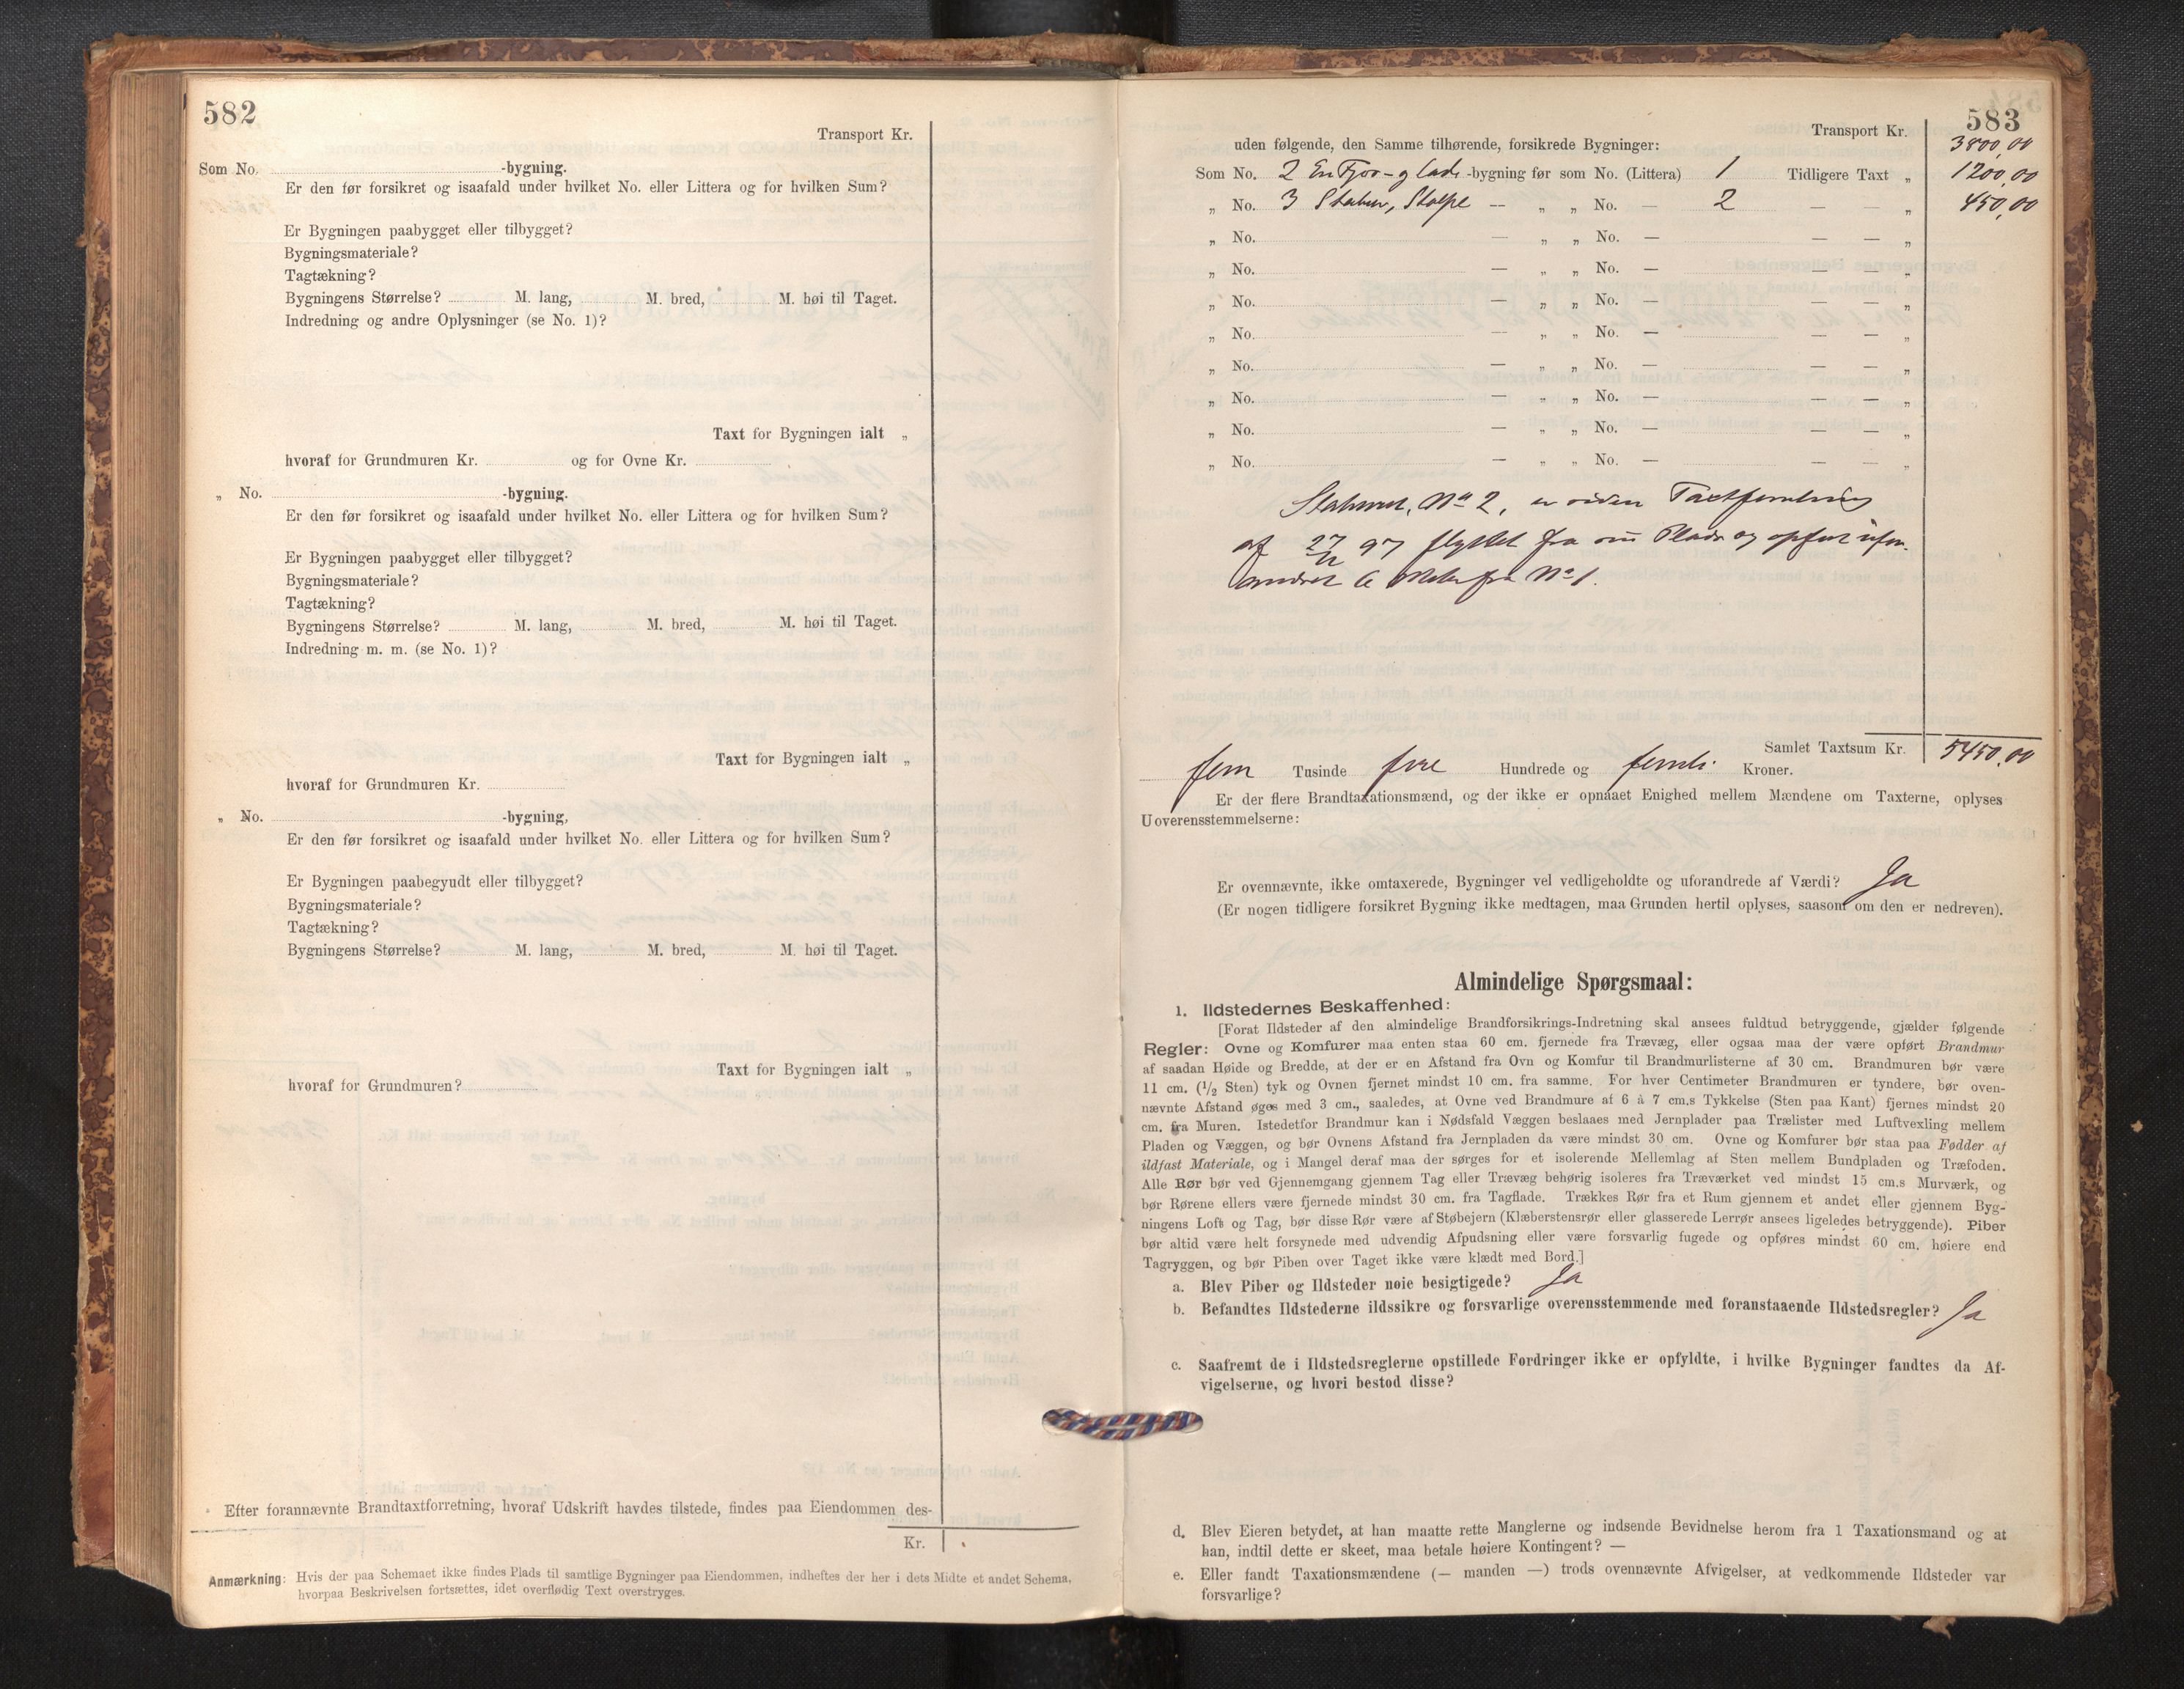 582
Transport Kr.
Som No. -bygning.
Er den før forsikret og isaafald under hvilket No. eller Littera og for hvilken Sum?
Er Bygningen paabygget eller tilbygget?
Bygningsmateriale?
Tagtækning?
Bygningens Størrelse? M. lang, M. bred, M. høi til Taget.
Indredning og andre Oplysninger (se No. 1)?
Taxt for Bygningen ialt „
hvoraf for Grundmuren Kr. og for Ovne Kr.
„ No. -bygning.
Er den før forsikret og isaafald under hvilket No. eller Littera og for hvilken Sum?
Er Bygningen paabygget eller tilbygget?
Bygningsmateriale?
Tagtækning?
Bygningens Størrelse? M. lang, M. bred, M. høi til Taget.
Indredning m. m. (se No. 1)?
Taxt for Bygningen ialt „
hvoraf for Grundmuren Kr.
„ No. -bygning,
Er den før forsikret og isaafald under hvilket No. eller Littera og for hvilken Sum?
Er Bygningen paabegyudt eller tilbygget?
Bygningsmateriale?
Tagtækning?
Bygningens Størrelse? M. lang, M. bred, M. høi til Taget.
Taxt for Bygningen ialt „
hvoraf for Grundmuren?
Efter forannævnte Brandtaxtforretning, hvoraf Udskrift havdes tilstede, findes paa Eiendommen des-
Kr.
Anmærkning: Hvis der paa Schemaet ikke findes Plads til samtlige Bygninger paa Eiendommen, indheftes der her i dets Midte et andet Schema,
hvorpaa Beskrivelsen fortsættes, idet overflødig Text overstryges.
583
Transport Kr. 3800,00
uden følgende, den Samme tilhørende, forsikrede Bygninger:
Som No. 2 En Fjøs- og Lade -bygning før som No. (Littera) 1 Tidligere Taxt „ 1200,00
„ No. 3 Stabur, Stolpe — „ „ No. — 2 — — „ 450,00
„ No. — „ „ No. — — — „
„ No. — „ „ No. — — — „
„ No. — „ „ No. — — — „
„ No. — „ „ No. — — — „
„ No. — „ „ No. — — — „
„ No. — „ „ No. — — — „
„ No. — „ „ No. — — — „
„ No. — „ „ No. — — — „
Staburet, No 2, er siden Taxtforretning
af 27 97 flyttet fra sin Plads og opført ufor-
andret 6 Meter fra No 1.
Samlet Taxtsum Kr. 5450,00
fem Tusinde fire Hundrede og femti Kroner.
Er der flere Brandtaxationsmænd, og der ikke er opnaaet Enighed mellem Mændene om Taxterne, oplyses
Uoverensstemmelserne:
Er ovennævnte, ikke omtaxerede, Bygninger vel vedligeholdte og uforandrede af Værdi? Ja
(Er nogen tidligere forsikret Bygning ikke medtagen, maa Grunden hertil oplyses, saasom om den er nedreven).
Almindelige Spørgsmaal:
1. Ildstedernes Beskaffenhed:
[Forat Ildsteder af den almindelige Brandforsikrings-Indretning skal ansees fuldtud betryggende, gjælder følgende
Regler: Ovne og Komfurer maa enten staa 60 cm. fjernede fra Trævæg, eller ogsaa maa der være opført Brandmur
af saadan Høide og Bredde, at der er en Afstand fra Ovn og Komfur til Brandmurlisterne af 30 cm. Brandmuren bør være
11 cm. (1/2 Sten) tyk og Ovnen fjernet mindst 10 cm. fra samme. For hver Centimeter Brandmuren er tyndere, bør oven-
nævnte Afstand øges med 3 cm., saaledes, at Ovne ved Brandmure af 6 à 7 cm.s Tykkelse (Sten paa Kant) fjernes mindst 20
cm. fra Muren. Istedetfor Brandmur kan i Nødsfald Væggen beslaaes med Jernplader paa Trælister med Luftvexling mellem
Pladen og Væggen, og bør Ovnens Afstand fra Jernpladen da være mindst 30 cm. Ovne og Komfurer bør staa paa Fødder af
ildfast Materiale, og i Mangel deraf maa der sørges for et isolerende Mellemlag af Sten mellem Bundpladen og Træfoden.
Alle Rør bør ved Gjennemgang gjennem Tag eller Trævæg behørig isoleres fra Træværket ved mindst 15 cm.s Murværk, og
bør Rørene ellers være fjernede mindst 30 cm. fra Tagflade. Trækkes Rør fra et Rum gjennem et andet eller gjennem Byg-
ningens Loft og Tag, bør disse Rør være af Støbejern (Klæberstensrør eller glasserede Lerrør ansees ligeledes betryggende). Piber
bør altid være helt forsynede med udvendig Afpudsning eller være forsvarlig fugede og opføres mindst 60 cm. høiere end
Tagryggen, og bør Piben over Taget ikke være klædt med Bord.]
a. Blev Piber og Ildsteder nøie besigtigede? Ja
b. Befandtes Ildstederne ildssikre og forsvarlige overensstemmende med foranstaaende Ildstedsregler? Ja
c. Saafremt de i Ildstedsreglerne opstillede Fordringer ikke er opfyldte, i hvilke Bygninger fandtes da Af-
vigelserne, og hvori bestod disse?
d. Blev Eieren betydet, at han maatte rette Manglerne og indsende Bevidnelse herom fra 1 Taxationsmand og at
han, indtil dette er skeet, maa betale høiere Kontingent? —
e. Eller fandt Taxationsmændene (— manden —) trods ovennævnte Afvigelser, at vedkommende Ildsteder var
forsvarlige?